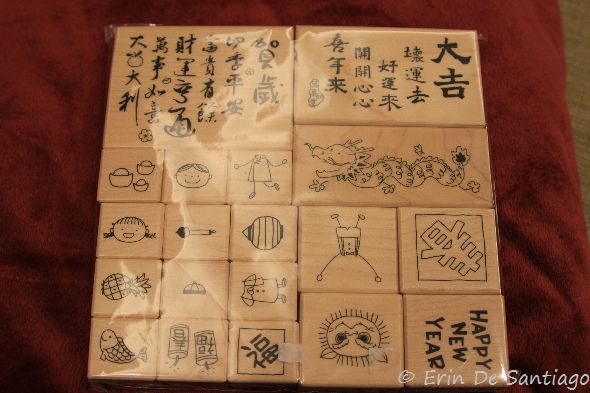 賀歲
四季平安
富貴有餘
財運亨通
萬事如意
大吉大利
大吉
壞運去
好運來
開開心心
喜年來
春
福
HAPPY
NEW
YEAR
© Erin De Santiago